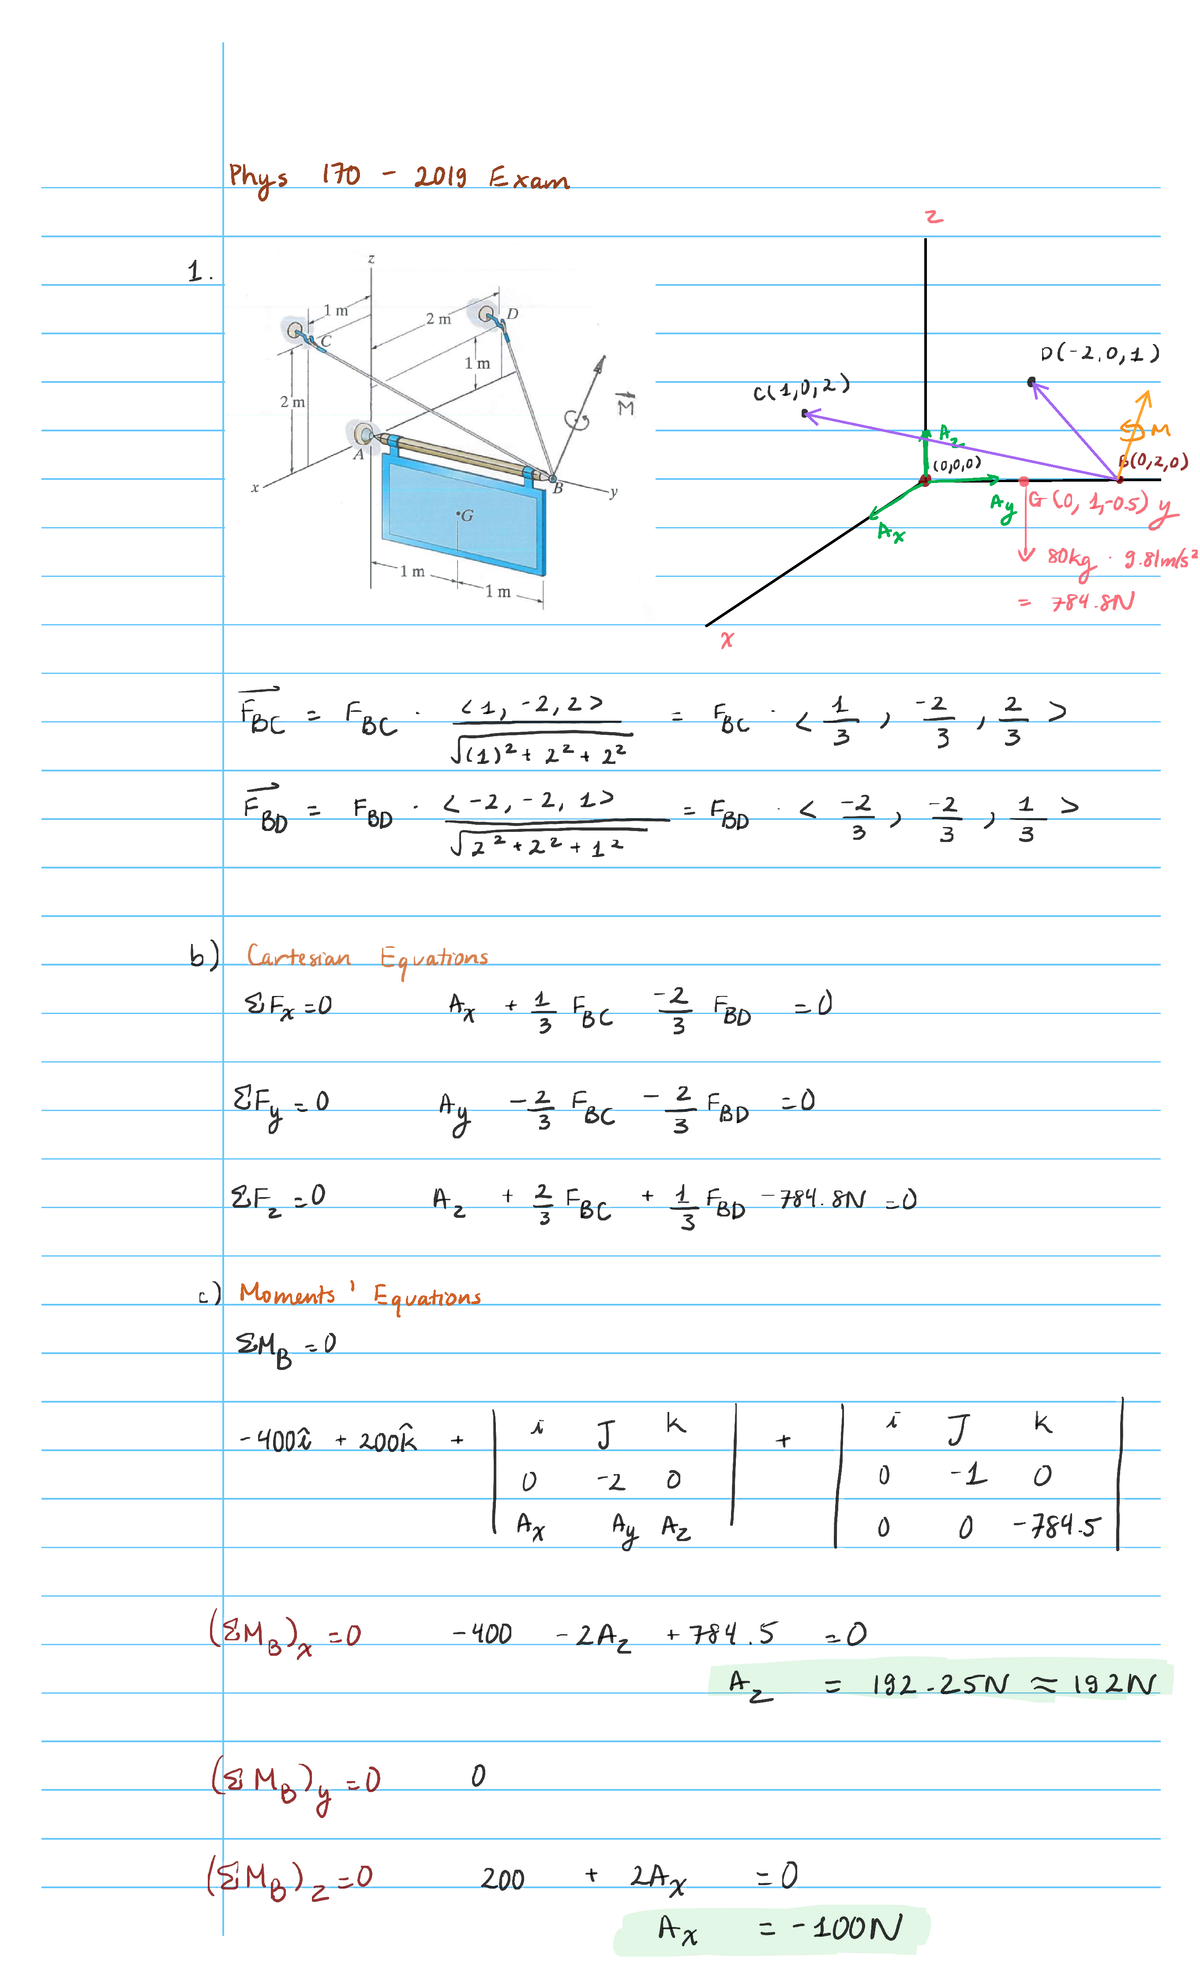 Phys 170 - 2019 Exam
1.
z
1 m
2 m
D
C
1 m
2 m
M
A
x
B
y
G
1 m
1 m
z
D(-2,0,1)
C(1,0,2)
Az
M
(0,0,0)
B(0,2,0)
Ay
G(0, 1,-0.5) y
Ax
80kg · 9.81m/s²
= 784.8N
x
F_BC = F_BC · <1, -2, 2> / √((1)² + 2² + 2²) = F_BC · < 1/3 , -2/3 , 2/3 >
F_BD = F_BD · <-2, -2, 1> / √(2² + 2² + 1²) = F_BD · < -2/3 , -2/3 , 1/3 >
b) Cartesian Equations
ΣFx = 0 Ax + 1/3 F_BC -2/3 F_BD = 0
ΣFy = 0 Ay -2/3 F_BC - 2/3 F_BD = 0
ΣFz = 0 Az + 2/3 F_BC + 1/3 F_BD - 784.8N = 0
c) Moments' Equations
ΣM_B = 0
-400î + 200k̂ + | i J k | + | i J k |
| 0 -2 0 | | 0 -1 0 |
| Ax Ay Az | | 0 0 -784.5 |
(ΣM_B)x = 0 -400 - 2Az + 784.5 = 0
Az = 192.25N ≈ 192N
(ΣM_B)y = 0 0
(ΣM_B)z = 0 200 + 2Ax = 0
Ax = -100N